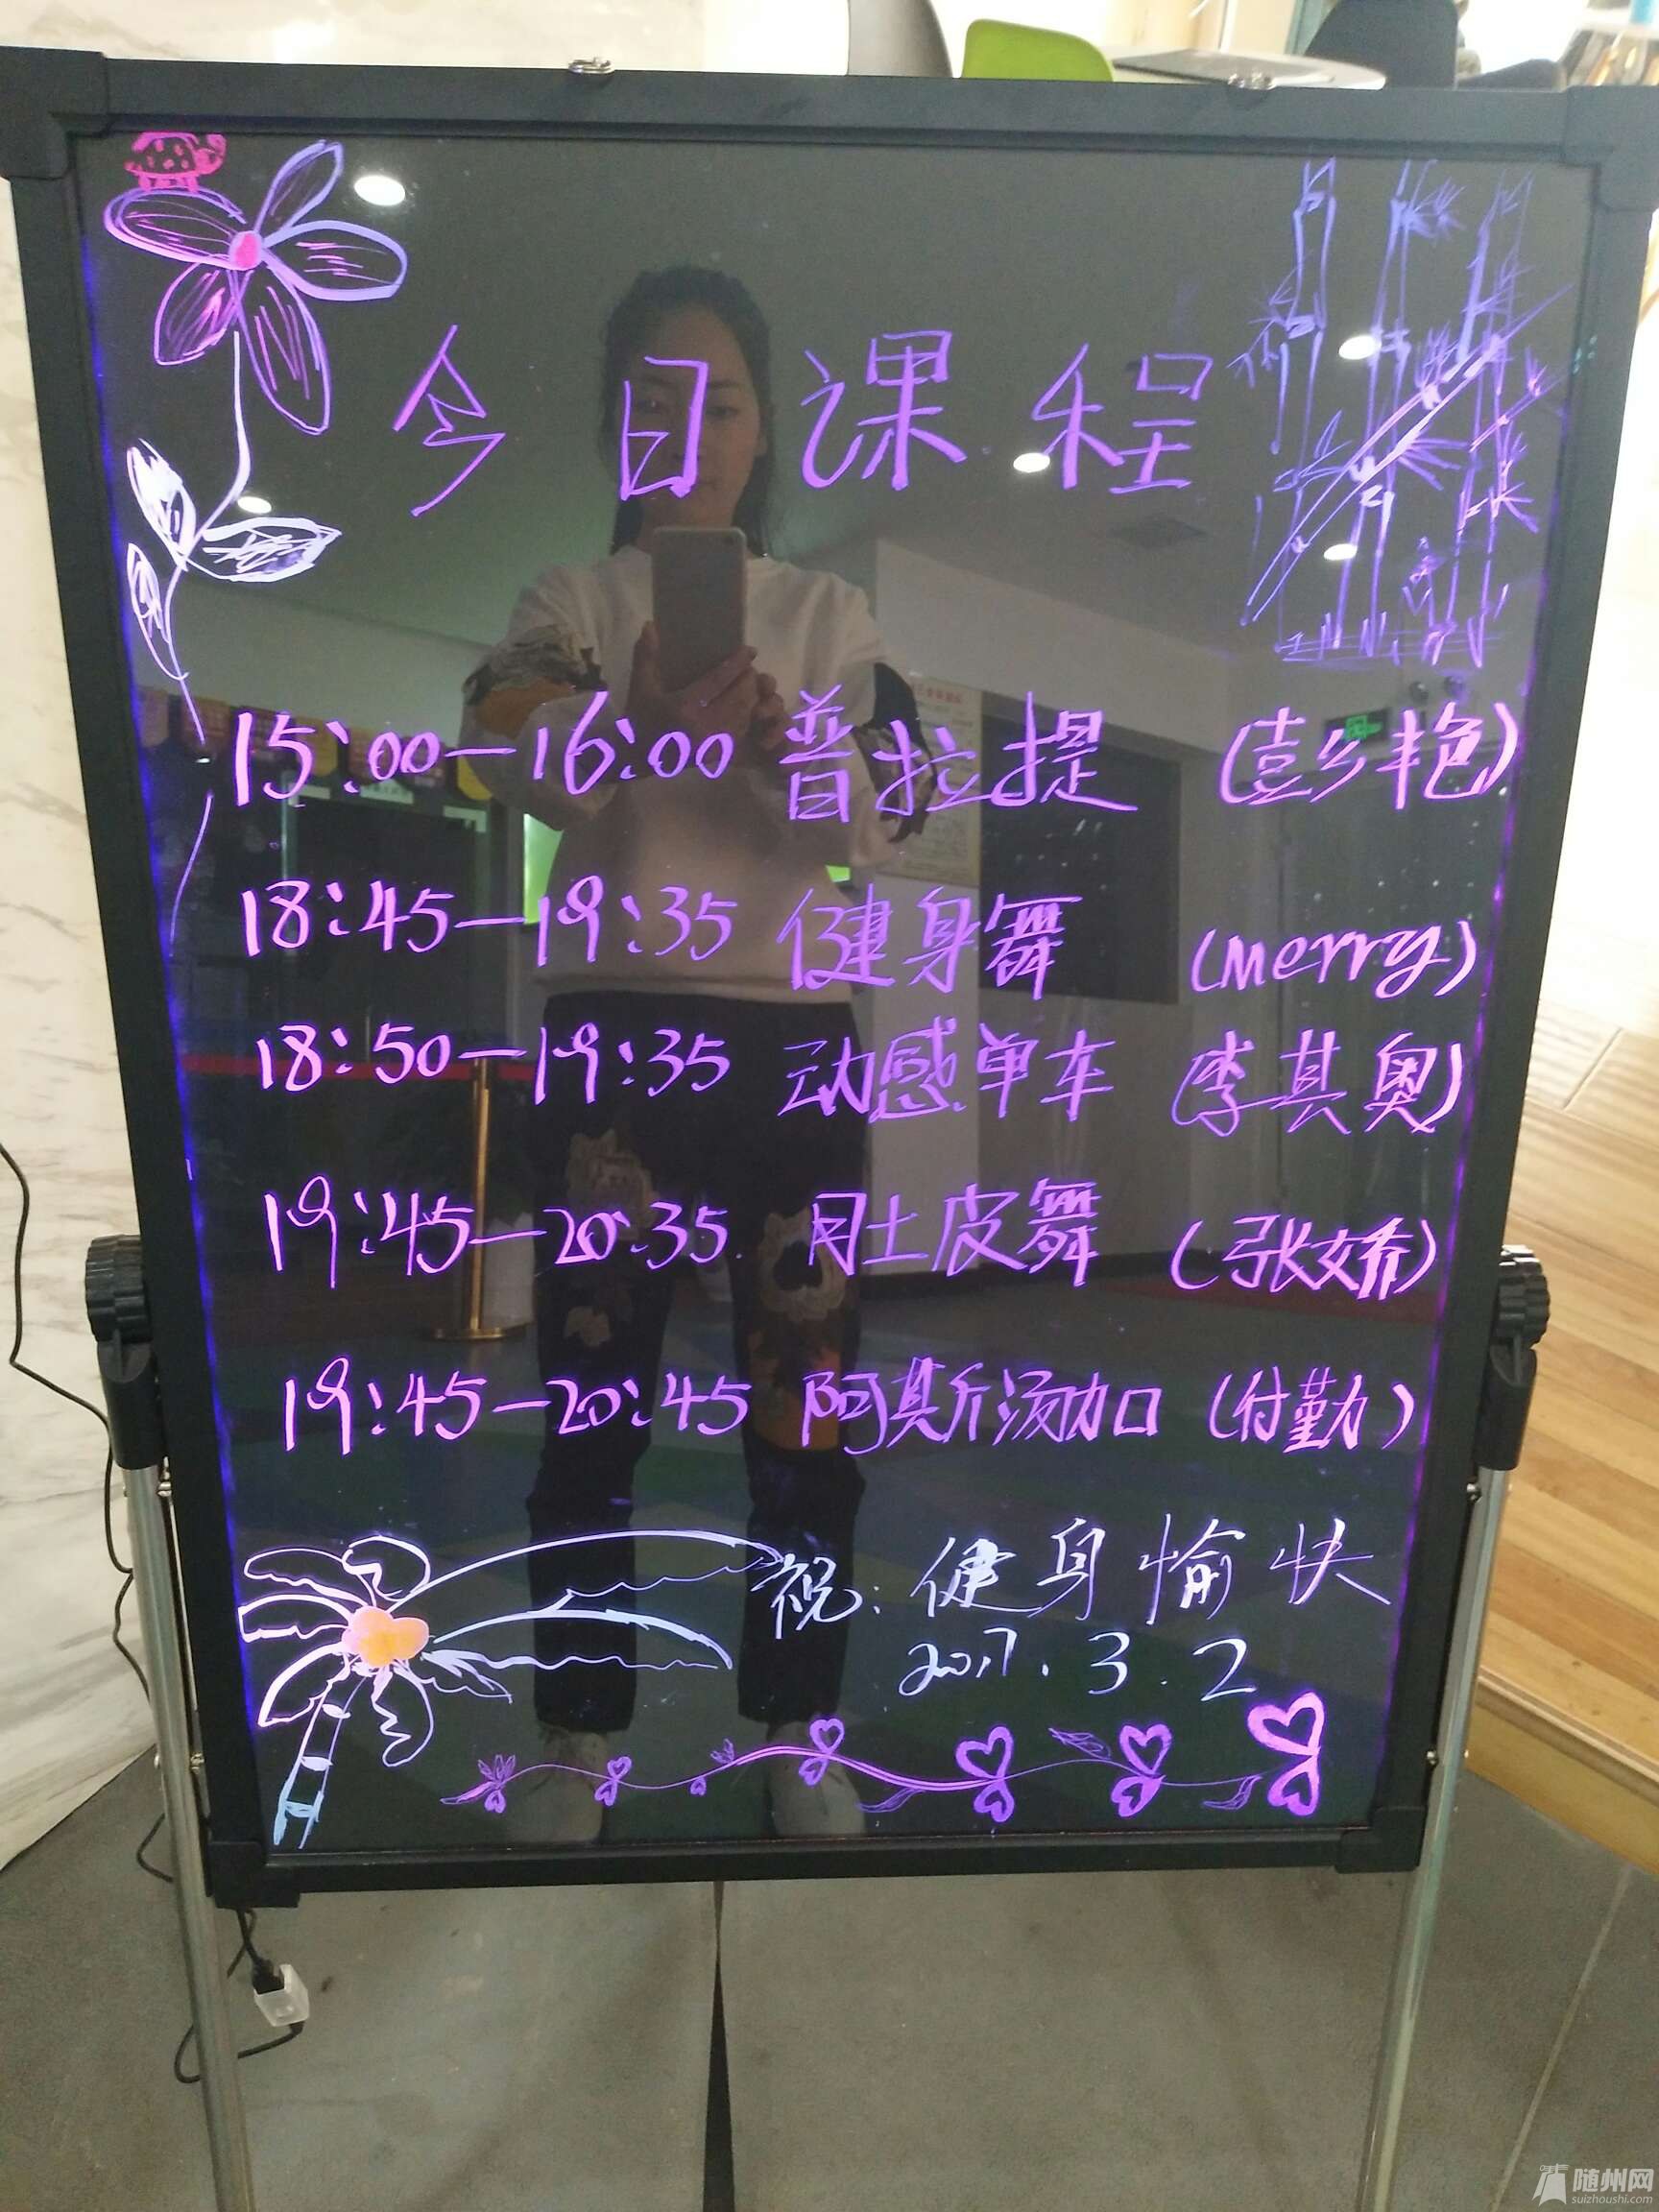 今日课程
15:00-16:00 普拉提 (彭艳)
18:45-19:35 健身舞 (Merry)
18:50-19:35 动感单车 (李其奥)
19:45-20:35 肚皮舞 (张娇)
19:45-20:45 阿斯汤加 (付勤)
祝:健身愉快
2017.3.2
随州网
suizhoushi.com